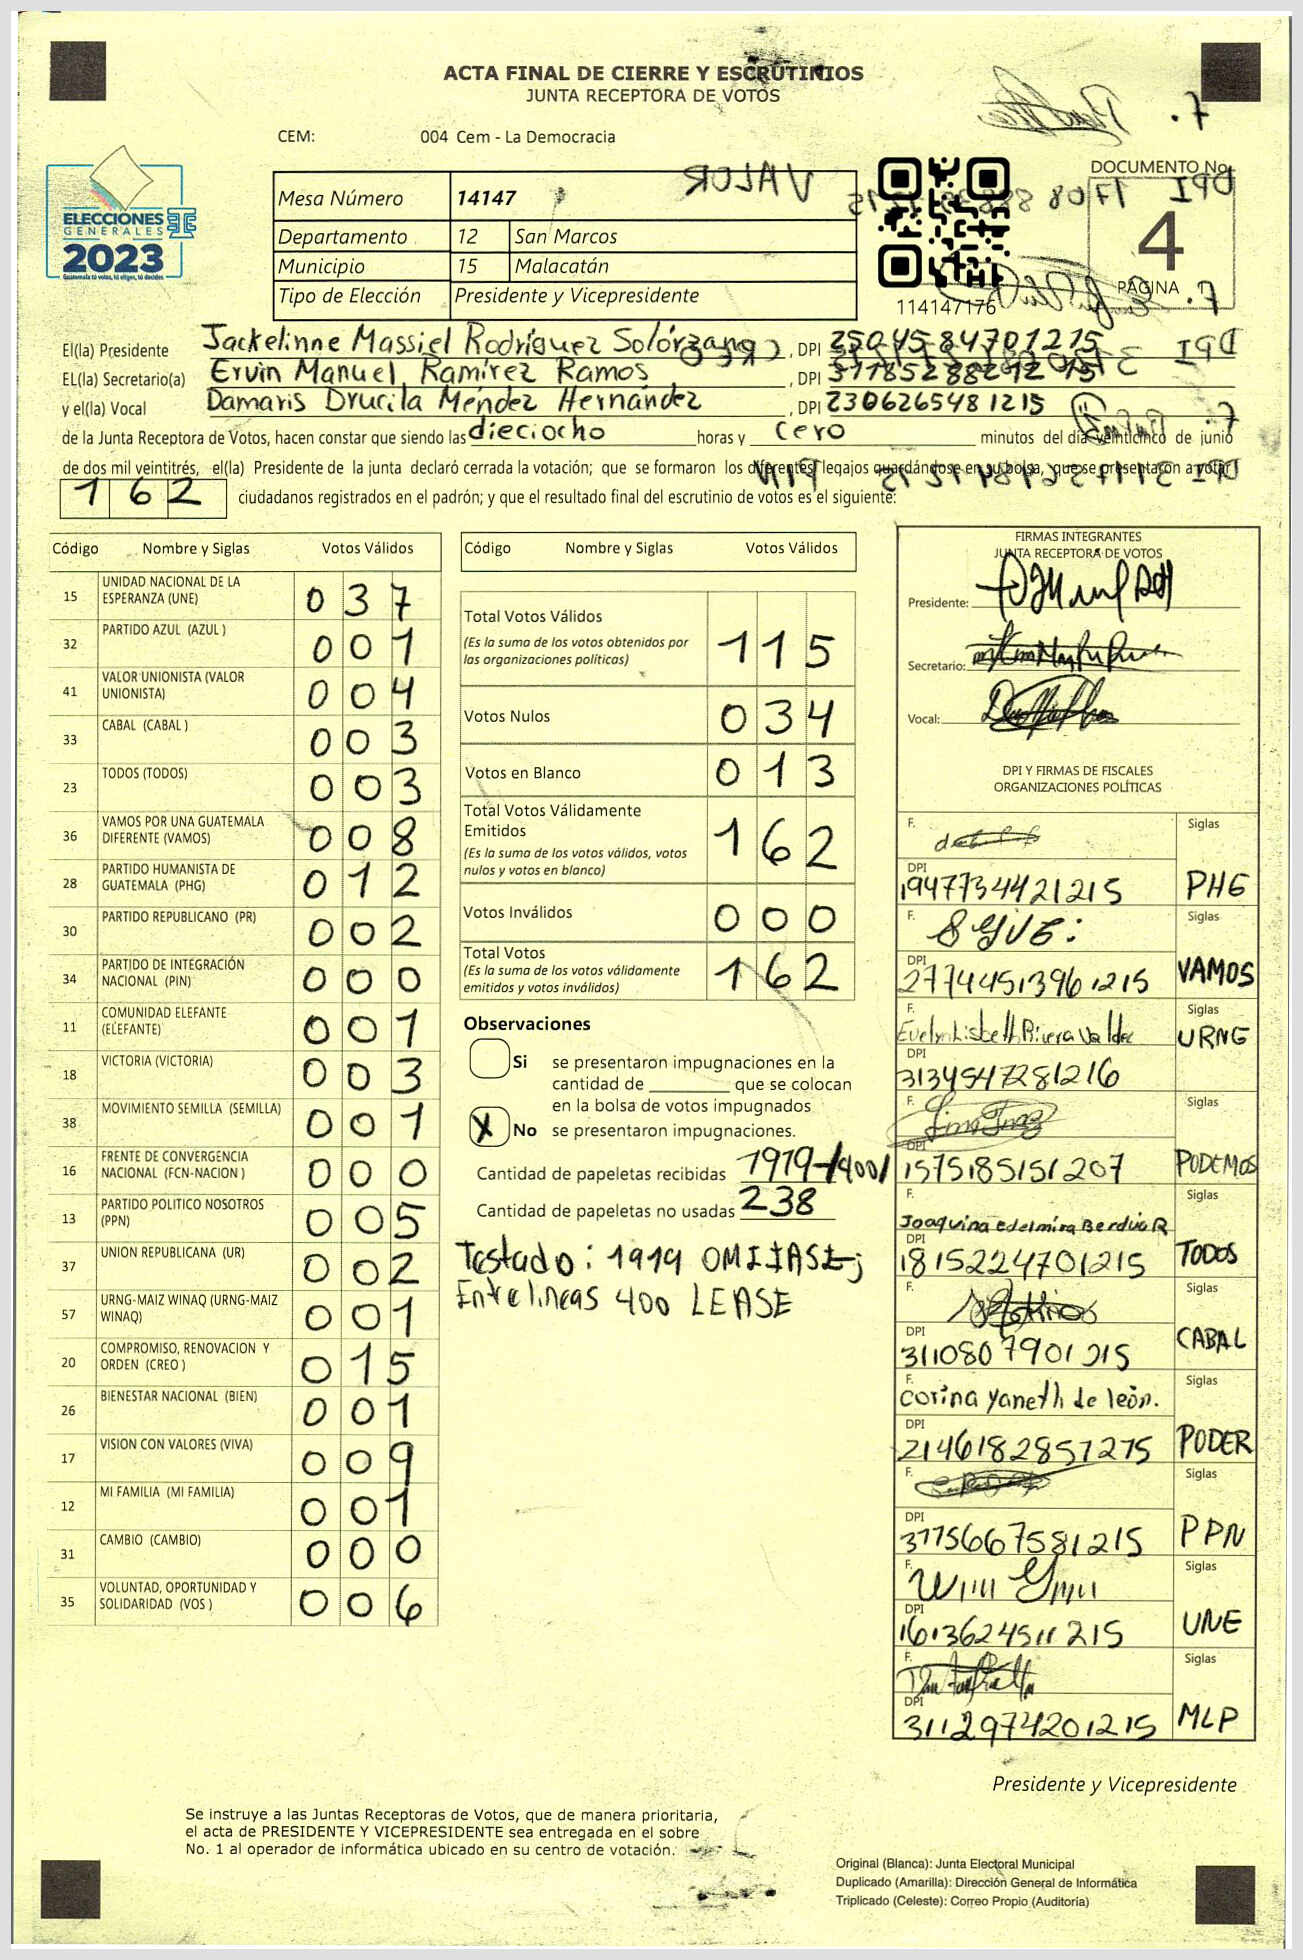 ACTA FINAL DE CIERRE Y ESCRUTINIOS
JUNTA RECEPTORA DE VOTOS
CEM: 004 Cem - La Democracia
ELECCIONES
GENERALES
2023
Guatemala tú votas, tú eliges, tú decides
Mesa Número 14147
Departamento 12 San Marcos
Municipio 15 Malacatán
Tipo de Elección Presidente y Vicepresidente
VALOR
114147176
DOCUMENTO No.
4
PÁGINA
El(la) Presidente Jackelinne Massiel Rodríguez Solórzano, DPI 2504584701215
EL(la) Secretario(a) Ervin Manuel Ramírez Ramos, DPI
y el(la) Vocal Damaris Drucila Méndez Hernández, DPI 2306265481215
de la Junta Receptora de Votos, hacen constar que siendo las dieciocho horas y cero minutos del día veinticinco de junio
de dos mil veintitrés, el(la) Presidente de la junta declaró cerrada la votación; que se formaron los diferentes legajos guardándose en su bolsa, que se presentaron a votar
162 ciudadanos registrados en el padrón; y que el resultado final del escrutinio de votos es el siguiente:
Código Nombre y Siglas Votos Válidos
15 UNIDAD NACIONAL DE LA ESPERANZA (UNE) 037
32 PARTIDO AZUL (AZUL ) 001
41 VALOR UNIONISTA (VALOR UNIONISTA) 004
33 CABAL (CABAL ) 003
23 TODOS (TODOS) 003
36 VAMOS POR UNA GUATEMALA DIFERENTE (VAMOS) 008
28 PARTIDO HUMANISTA DE GUATEMALA (PHG) 012
30 PARTIDO REPUBLICANO (PR) 002
34 PARTIDO DE INTEGRACIÓN NACIONAL (PIN) 000
11 COMUNIDAD ELEFANTE (ELEFANTE) 001
18 VICTORIA (VICTORIA) 003
38 MOVIMIENTO SEMILLA (SEMILLA) 001
16 FRENTE DE CONVERGENCIA NACIONAL (FCN-NACION ) 000
13 PARTIDO POLITICO NOSOTROS (PPN) 005
37 UNION REPUBLICANA (UR) 002
57 URNG-MAIZ WINAQ (URNG-MAIZ WINAQ) 001
20 COMPROMISO, RENOVACION Y ORDEN (CREO ) 015
26 BIENESTAR NACIONAL (BIEN) 001
17 VISION CON VALORES (VIVA) 009
12 MI FAMILIA (MI FAMILIA) 001
31 CAMBIO (CAMBIO) 000
35 VOLUNTAD, OPORTUNIDAD Y SOLIDARIDAD (VOS ) 006
Código Nombre y Siglas Votos Válidos
Total Votos Válidos 115
(Es la suma de los votos obtenidos por
las organizaciones políticas)
Votos Nulos 034
Votos en Blanco 013
Total Votos Válidamente
Emitidos 162
(Es la suma de los votos válidos, votos
nulos y votos en blanco)
Votos Inválidos 000
Total Votos 162
(Es la suma de los votos válidamente
emitidos y votos inválidos)
Observaciones
Si se presentaron impugnaciones en la
cantidad de ________ que se colocan
en la bolsa de votos impugnados
X No se presentaron impugnaciones.
Cantidad de papeletas recibidas 1919-/400/
Cantidad de papeletas no usadas 238
Testado: 1919 OMITASE;
Entre lineas 400 LEASE
FIRMAS INTEGRANTES
JUNTA RECEPTORA DE VOTOS
Presidente:
Secretario:
Vocal:
DPI Y FIRMAS DE FISCALES
ORGANIZACIONES POLÍTICAS
F. Siglas
DPI 1947734421215 PHG
F. Siglas
DPI 27744513961215 VAMOS
F. Evelyn Lisbeth Rivera Valdez Siglas
DPI 3134547281216 URNG
F. Siglas
DPI 1575185151207 PODEMOS
F. Joaquina Edelmira Berdúo R Siglas
DPI 1815224701215 TODOS
F. Siglas
DPI 3110807901215 CABAL
F. Corina Yaneth de león. Siglas
DPI 2146182851215 PODER
F. Siglas
DPI 3775667581215 PPN
F. Siglas
DPI 1613624511215 UNE
F. Siglas
DPI 3112974201215 MLP
Presidente y Vicepresidente
Se instruye a las Juntas Receptoras de Votos, que de manera prioritaria,
el acta de PRESIDENTE Y VICEPRESIDENTE sea entregada en el sobre
No. 1 al operador de informática ubicado en su centro de votación.
Original (Blanca): Junta Electoral Municipal
Duplicado (Amarilla): Dirección General de Informática
Triplicado (Celeste): Correo Propio (Auditoría)